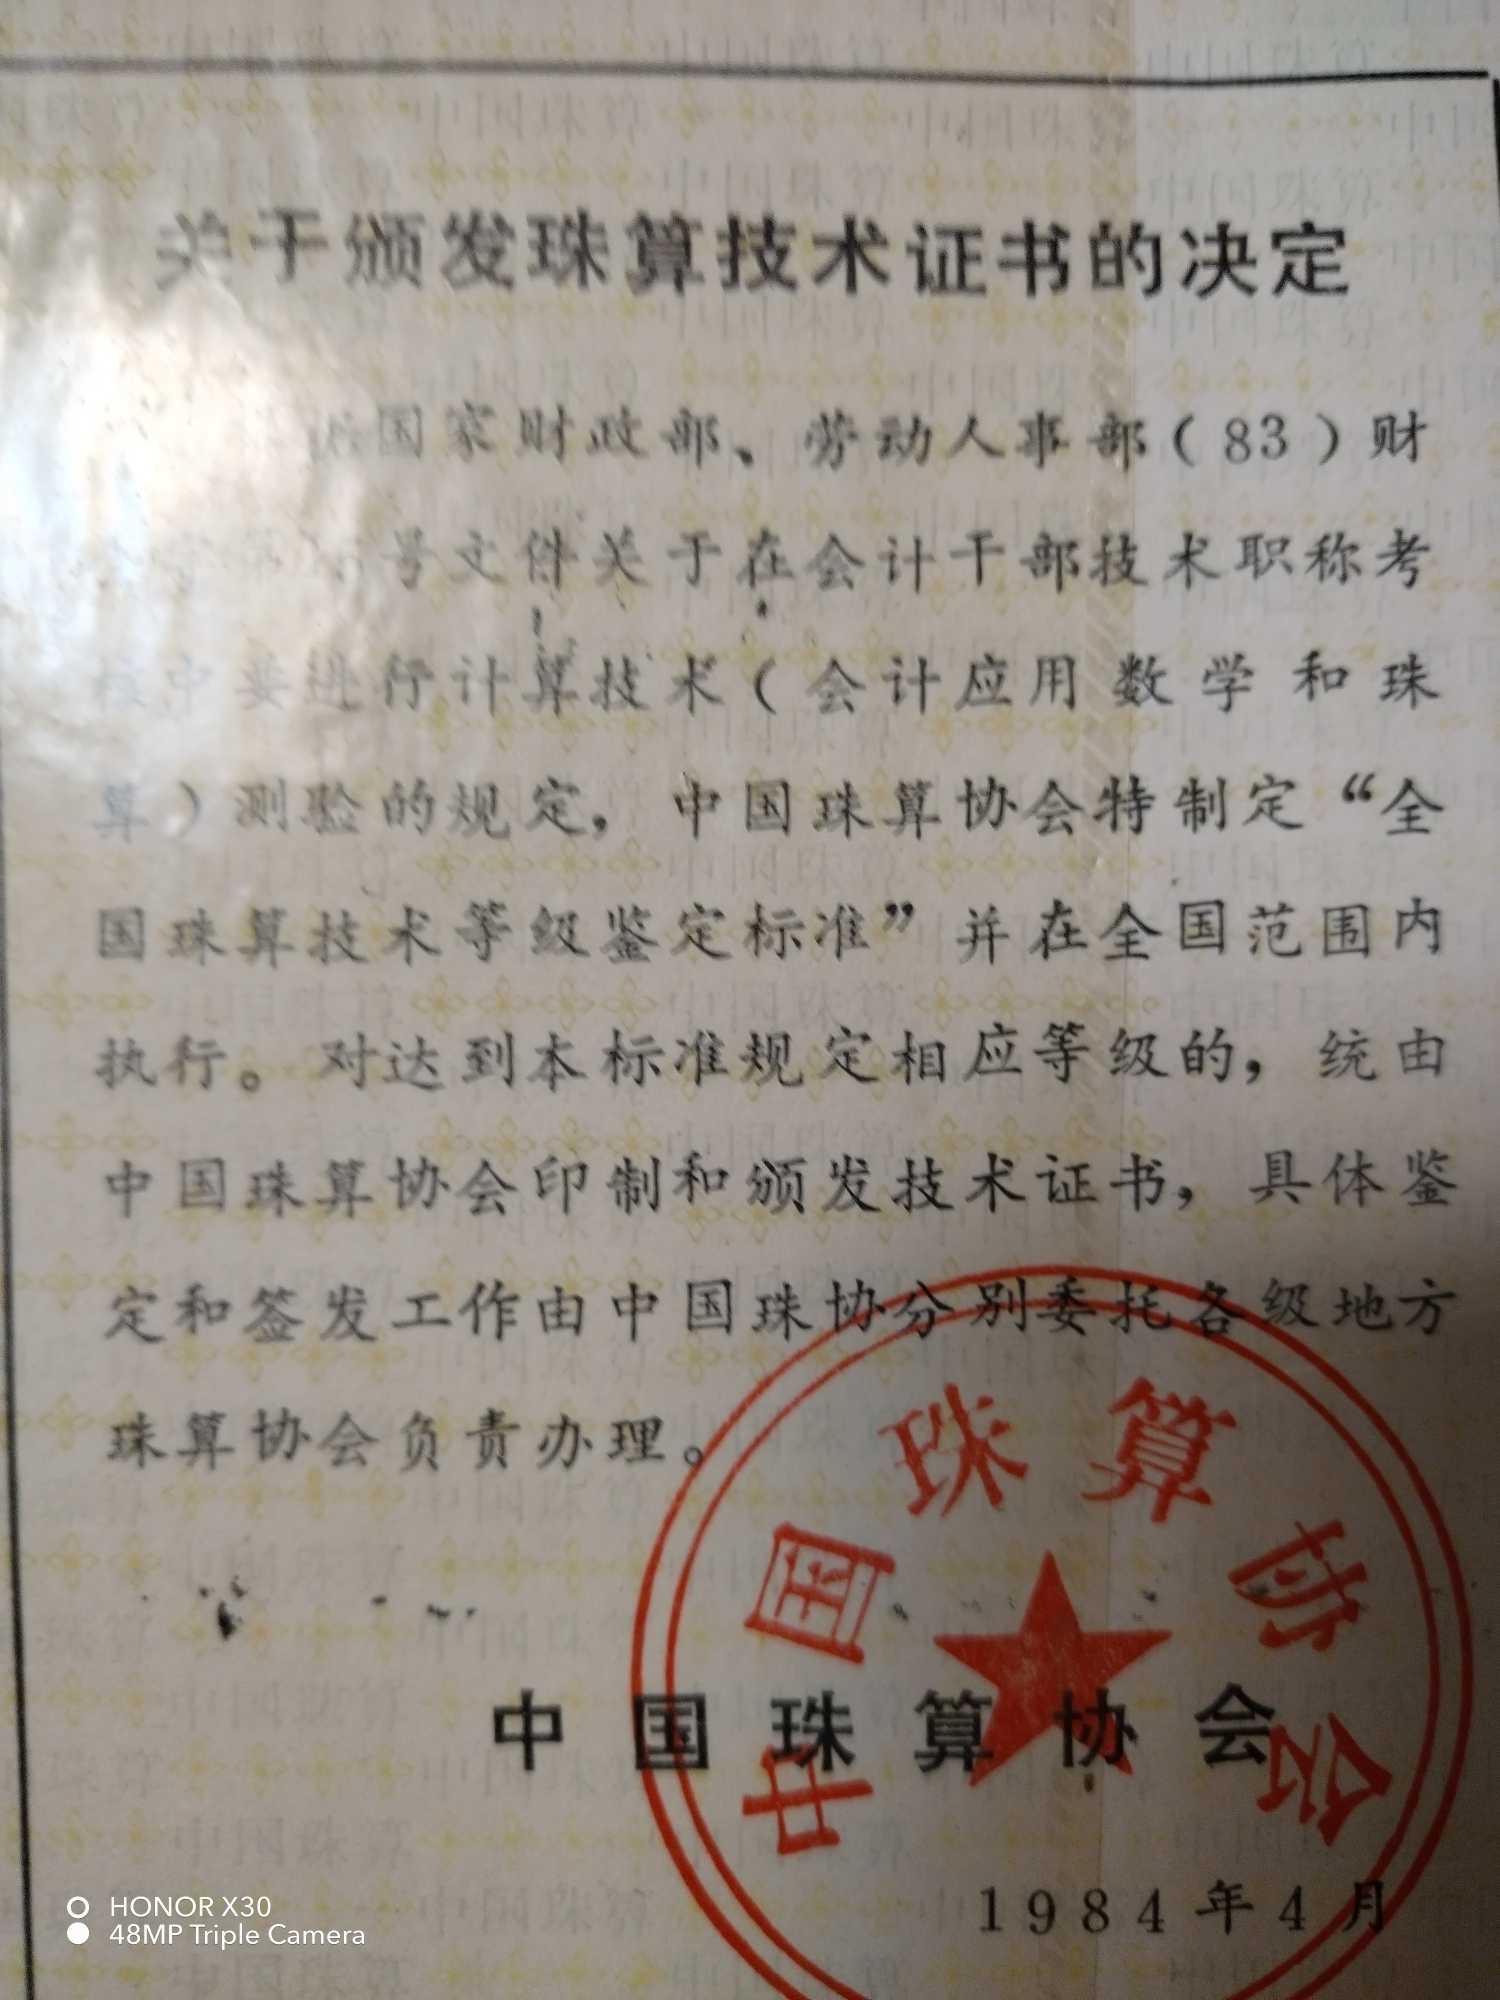 关于颁发珠算技术证书的决定
国家财政部、劳动人事部(83)财
号文件关于在会计干部技术职称考
核中要进行计算技术(会计应用数学和珠
算)测验的规定，中国珠算协会特制定“全
国珠算技术等级鉴定标准”并在全国范围内
执行。对达到本标准规定相应等级的，统由
中国珠算协会印制和颁发技术证书，具体鉴
定和签发工作由中国珠协分别委托各级地方
珠算协会负责办理。
中国珠算协会
中国珠算协会
1984年4月
HONOR X30
48MP Triple Camera